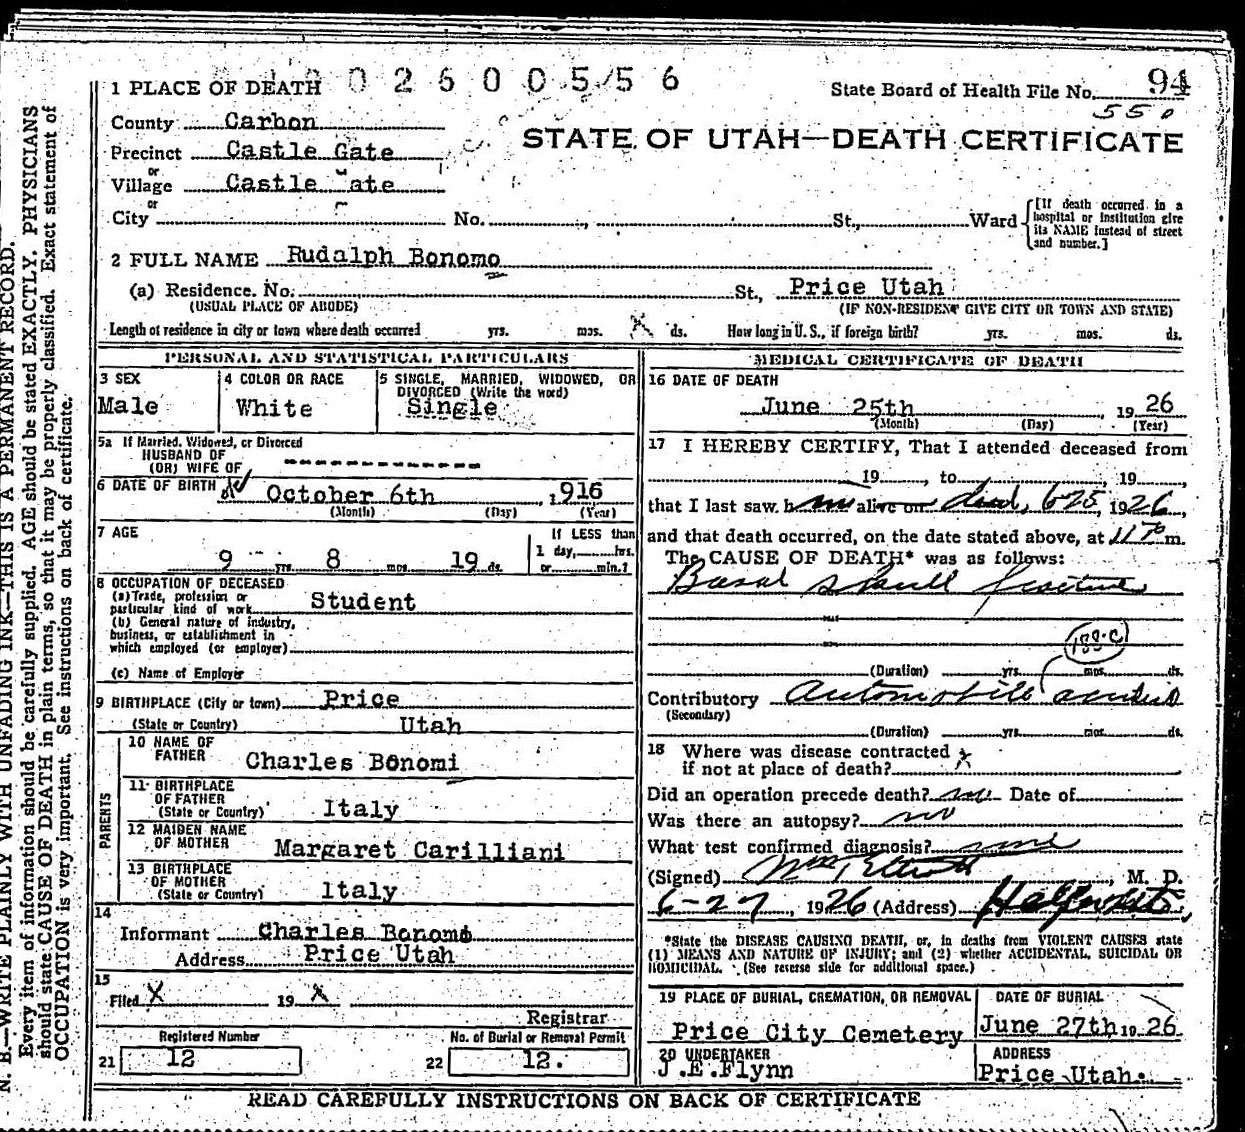 0 0 2 6 0 0 5 5 6
1 PLACE OF DEATH
State Board of Health File No. 94
550
County Carbon
STATE OF UTAH—DEATH CERTIFICATE
Precinct Castle Gate
or
Village Castle Gate
or
City No. St., Ward
[If death occurred in a hospital or institution give its NAME instead of street and number.]
2 FULL NAME Rudalph Bonomo
(a) Residence. No. St., Price Utah
(USUAL PLACE OF ABODE) (IF NON-RESIDENT GIVE CITY OR TOWN AND STATE)
Length of residence in city or town where death occurred yrs. mos. X ds. How long in U. S., if foreign birth? yrs. mos. ds.
PERSONAL AND STATISTICAL PARTICULARS
3 SEX
Male
4 COLOR OR RACE
White
5 SINGLE, MARRIED, WIDOWED, OR
DIVORCED (Write the word)
Single
5a If Married, Widowed, or Divorced
HUSBAND OF
(OR) WIFE OF
6 DATE OF BIRTH October 6th , 1916
(Month) (Day) (Year)
7 AGE
9 yrs. 8 mos. 19 ds.
If LESS than
1 day, hrs.
or min.?
8 OCCUPATION OF DECEASED
(a) Trade, profession or
particular kind of work Student
(b) General nature of industry,
business, or establishment in
which employed (or employer)
(c) Name of Employer
9 BIRTHPLACE (City or town) Price
(State or Country) Utah
PARENTS
10 NAME OF
FATHER Charles Bonomi
11 BIRTHPLACE
OF FATHER
(State or Country) Italy
12 MAIDEN NAME
OF MOTHER Margaret Carilliani
13 BIRTHPLACE
OF MOTHER
(State or Country) Italy
14
Informant Charles Bonomo
Address Price Utah
15
Filed X 19 X
Registrar
Registered Number
21 12
No. of Burial or Removal Permit
22 12.
MEDICAL CERTIFICATE OF DEATH
16 DATE OF DEATH
June 25th , 19 26
(Month) (Day) (Year)
17 I HEREBY CERTIFY, That I attended deceased from
19 , to , 19 ,
that I last saw h im alive on dead, 6-25, 1926,
and that death occurred, on the date stated above, at m.
The CAUSE OF DEATH* was as follows:
Basal skull fracture
188-c
(Duration) yrs. mos. ds.
Contributory Automobile accident
(Secondary)
(Duration) yrs. mos. ds.
18 Where was disease contracted
if not at place of death? X
Did an operation precede death? no Date of
Was there an autopsy? no
What test confirmed diagnosis?
(Signed) , M. D.
6-27, 1926 (Address)
*State the DISEASE CAUSING DEATH, or, in deaths from VIOLENT CAUSES state
(1) MEANS AND NATURE OF INJURY; and (2) whether ACCIDENTAL, SUICIDAL OR
HOMICIDAL. (See reverse side for additional space.)
19 PLACE OF BURIAL, CREMATION, OR REMOVAL
Price City Cemetery
DATE OF BURIAL
June 27th 19 26
20 UNDERTAKER
J.E.Flynn
ADDRESS
Price Utah.
READ CAREFULLY INSTRUCTIONS ON BACK OF CERTIFICATE
N. B.—WRITE PLAINLY WITH UNFADING INK—THIS IS A PERMANENT RECORD.
Every item of information should be carefully supplied. AGE should be stated EXACTLY. PHYSICIANS
should state CAUSE OF DEATH in plain terms, so that it may be properly classified. Exact statement of
OCCUPATION is very important. See instructions on back of certificate.